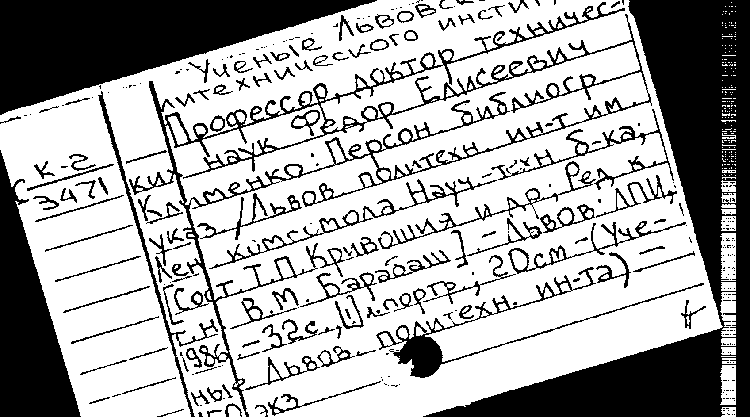 Ученые Львовск
литехнического инстит
Профессор, доктор техничес-
ких наук Федор Елисеевич
Клименко: Персон. библиогр.
указ. / Львов. политехн. ин-т им.
Лен. комсомола. Науч.-техн. б-ка;
[Сост. Т.П. Кривошия и др.; Ред. к.
т.н. В.М. Барабаш]. - Львов: ЛПИ,
1986. - 32с., [1] л. портр.; 20см - (Уче-
ные Львов. политехн. ин-та) -
экз
СК-2
3471